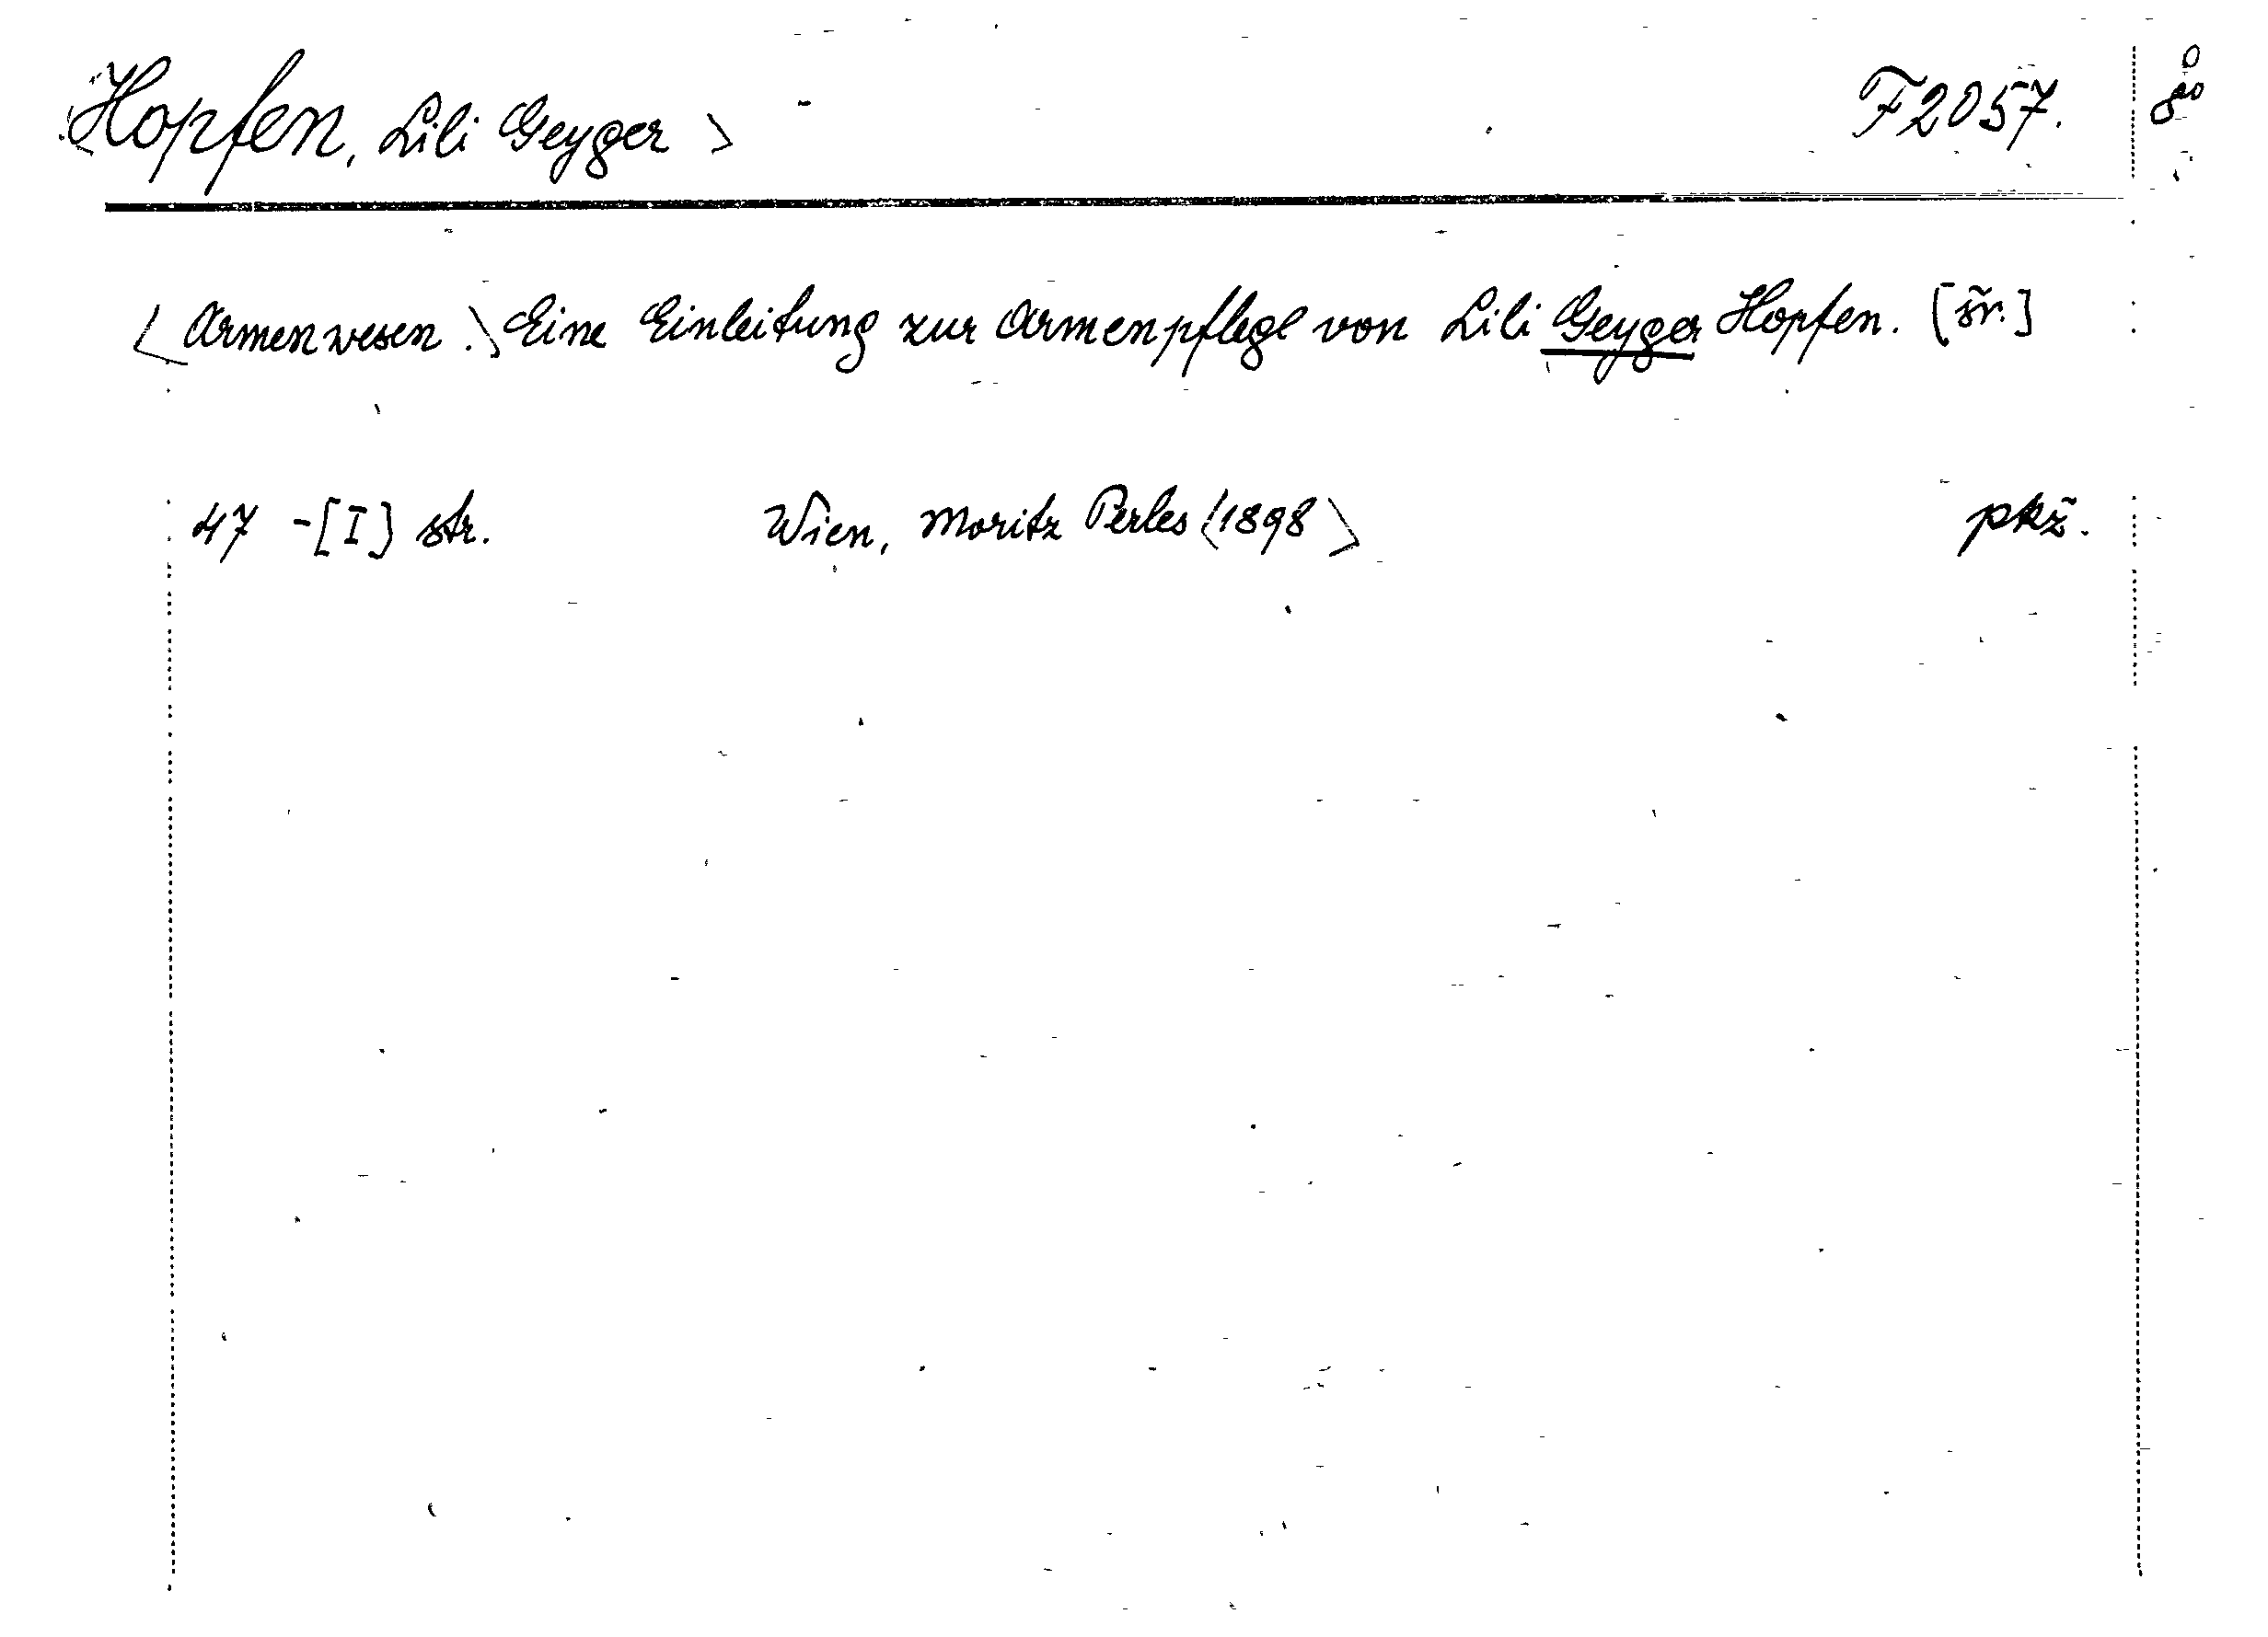 <Hopfen, Lili Geyger> F2057. 8°
<Armenwesen.> Eine Einleitung zur Armenpflege von Lili Geyger Hopfen. [šr.]
47 -[I] str. Wien, Moritz Perles <1898> pkž.